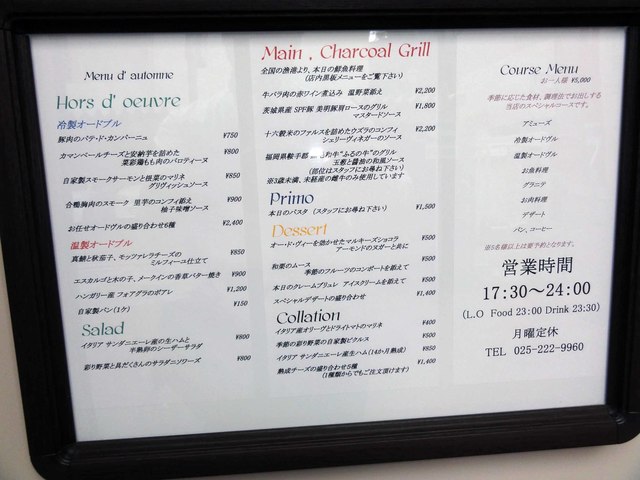 Menu d' automne
Hors d' oeuvre
冷製オードブル
豚肉のパテ・ド・カンパーニュ ¥750
カマンベールチーズと安納芋を詰めた ¥800
菜彩鶏もも肉のバロティーヌ
自家製スモークサーモンと根菜のマリネ ¥850
グリヴィッシュソース
合鴨胸肉のスモーク 里芋のコンフィ添え ¥900
柚子味噌ソース
お任せオードヴルの盛り合わせ6種 ¥2,400
温製オードブル
真鱈と秋茄子、モッツァレラチーズの ¥850
ミルフィーユ仕立て
エスカルゴと木の子、メークインの香草バター焼き ¥900
ハンガリー産 フォアグラのポアレ ¥1,200
自家製パン(1ケ) ¥150
Salad
イタリア サンダニエーレ産の生ハムと ¥800
半熟卵のシーザーサラダ
彩り野菜と具だくさんのサラダニソワーズ ¥800
Main , Charcoal Grill
全国の漁港より、本日の鮮魚料理
(店内黒板メニューをご覧下さい)
牛バラ肉の赤ワイン煮込み 温野菜添え ¥2,200
茨城県産 SPF豚 美明豚肩ロースのグリル ¥1,800
マスタードソース
十六穀米のファルスを詰めたウズラのコンフィ ¥2,200
シェリーヴィネガーのソース
福岡県鞍手郡 毛和牛"ふるの牛"のグリル
玉葱と醤油の和風ソース
(部位はスタッフにお尋ね下さい)
※3歳未満、未経産の雌牛のみ使用しています
Primo
本日のパスタ (スタッフにお尋ね下さい) ¥1,500
Dessert
オー・ド・ヴィーを効かせたマルキーズショコラ ¥500
アーモンドのヌガーと共に
和栗のムース ¥500
季節のフルーツのコンポートを添えて
本日のクレームブリュレ アイスクリームを添えて ¥500
スペシャルデザートの盛り合わせ ¥1,400
Collation
イタリア産オリーヴとドライトマトのマリネ ¥400
季節の彩り野菜の自家製ピクルス ¥500
イタリア サンダニエーレ産生ハム(14か月熟成) ¥850
熟成チーズの盛り合わせ5種 ¥1,400
(1種類からでもご注文頂けます)
Course Menu
お一人様 ¥5,000
季節に応じた食材、調理法でお出しする
当店のスペシャルコースです。
アミューズ
冷製オードヴル
温製オードヴル
お魚料理
グラニテ
お肉料理
デザート
パン、コーヒー
※5名様以上は要予約となります。
営業時間
17:30～24:00
(L.O Food 23:00 Drink 23:30)
月曜定休
TEL 025-222-9960